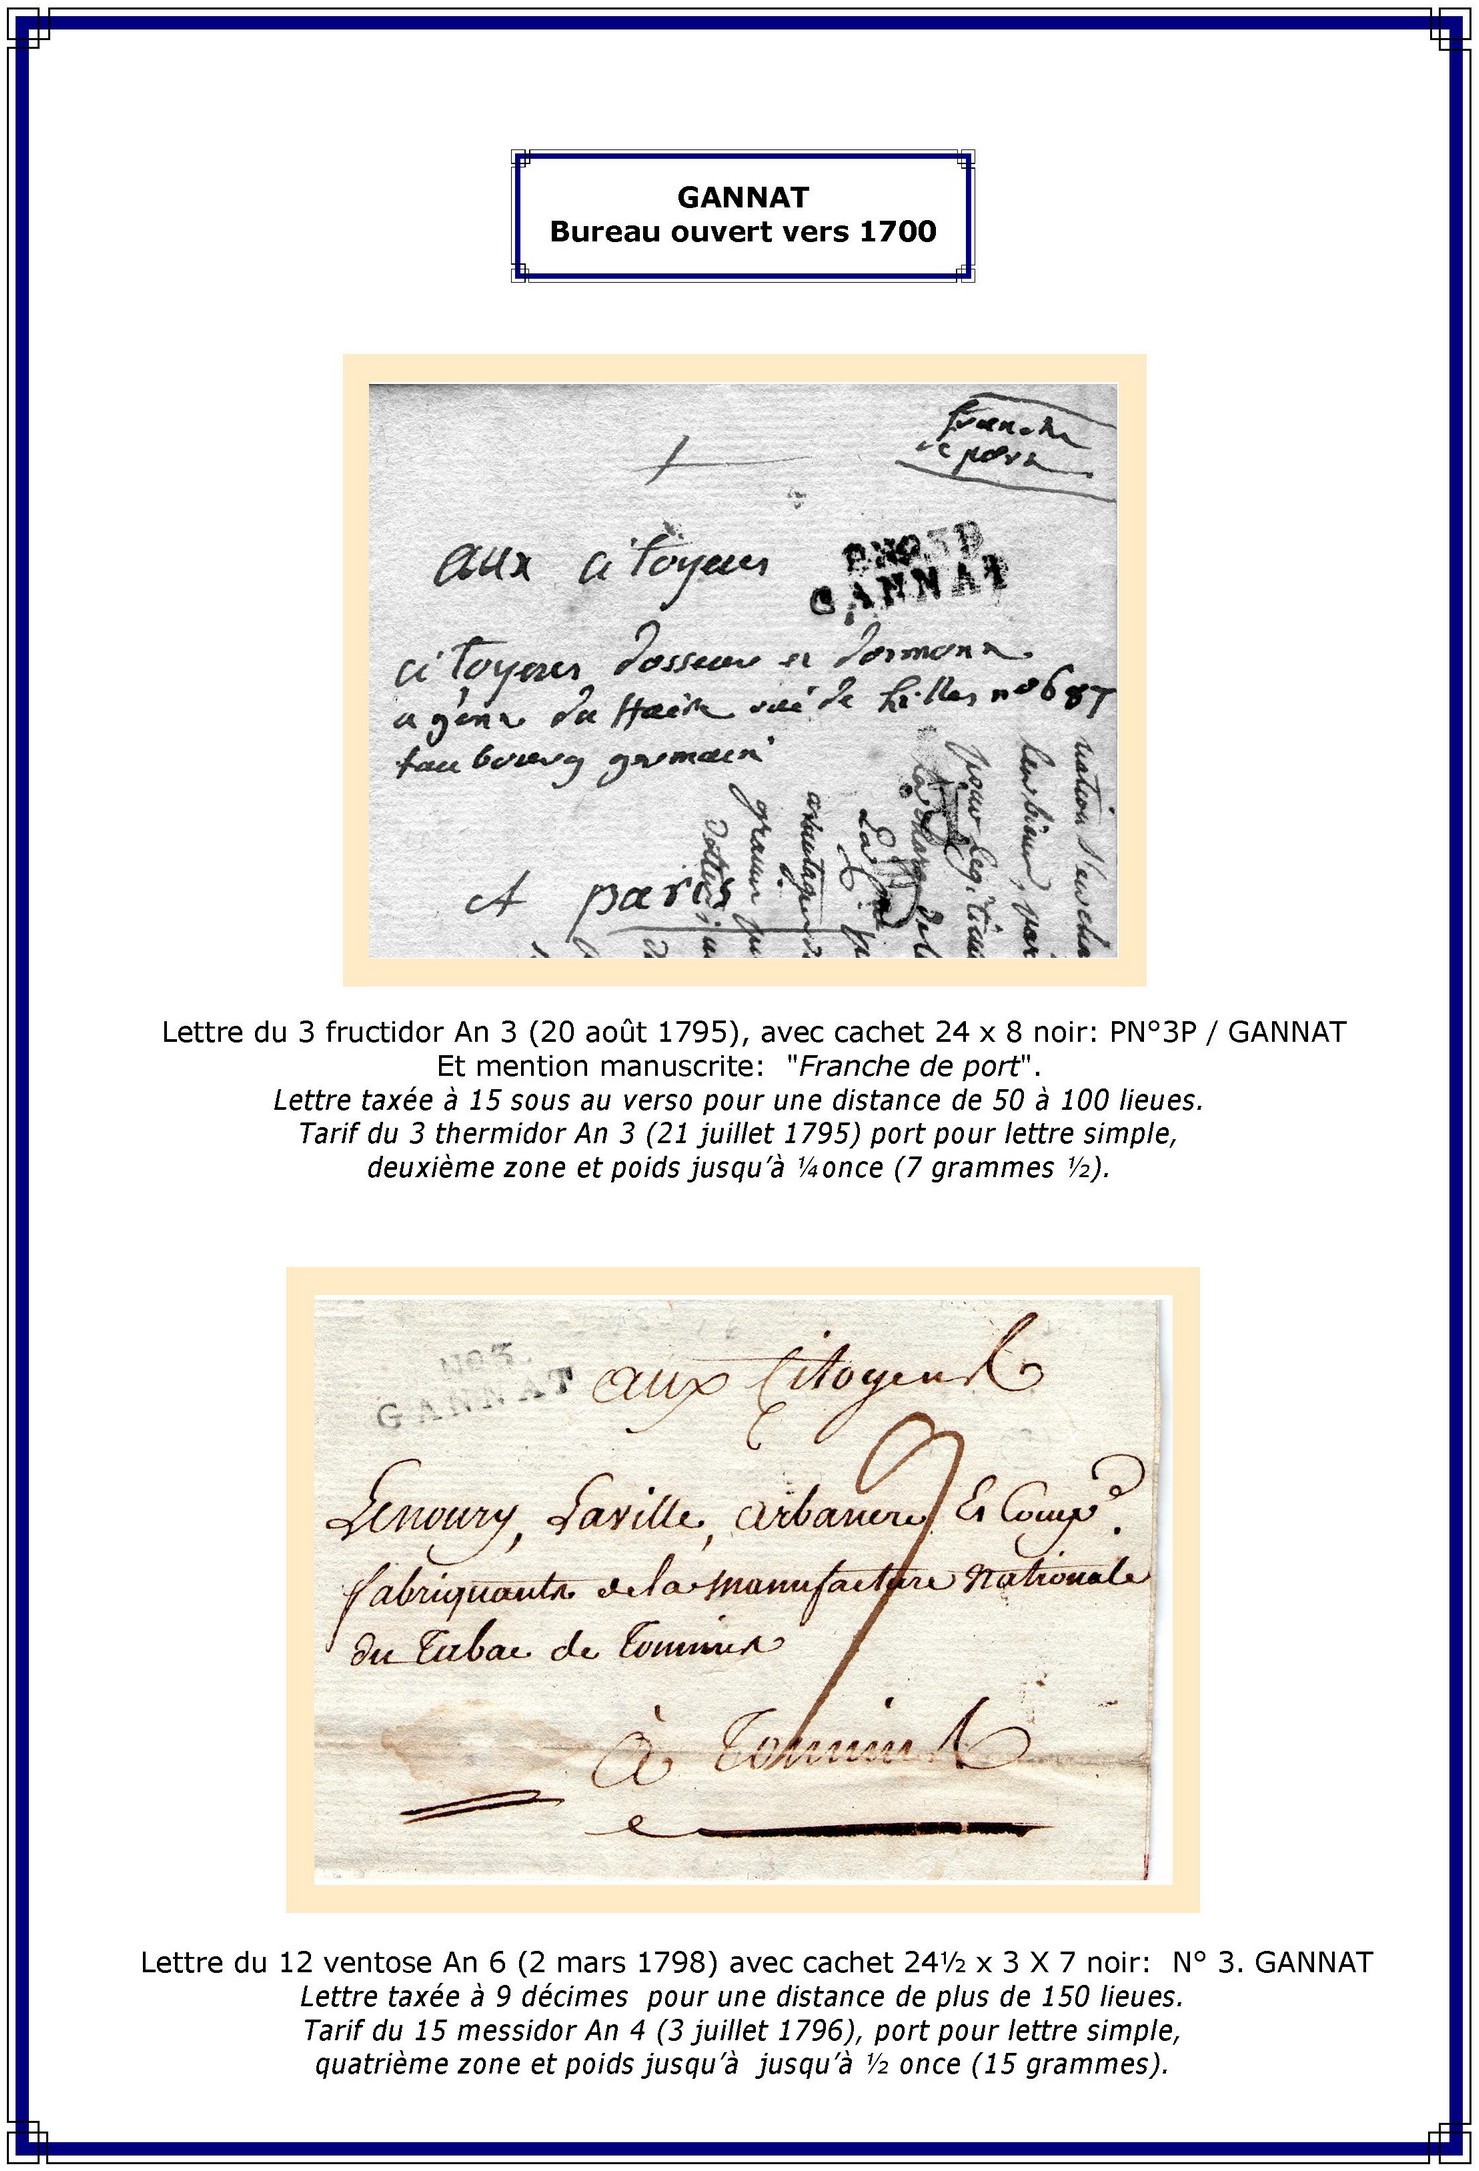 GANNAT
Bureau ouvert vers 1700
franche
de port
aux citoyens
PNO3P
GANNAT
citoyens et
agent du rue de Lilles no 687
faubourg germain
A paris
Lettre du 3 fructidor An 3 (20 août 1795), avec cachet 24 x 8 noir: PN°3P / GANNAT
Et mention manuscrite: "Franche de port".
Lettre taxée à 15 sous au verso pour une distance de 50 à 100 lieues.
Tarif du 3 thermidor An 3 (21 juillet 1795) port pour lettre simple,
deuxième zone et poids jusqu’à ¼once (7 grammes ½).
NO3.
GANNAT
aux Citoyens
Lenoury, Laville, Et Compe.
fabriquants de la manufacture Nationale
du Tabac de Tonneins
9
à Tonneins
Lettre du 12 ventose An 6 (2 mars 1798) avec cachet 24½ x 3 X 7 noir: N° 3. GANNAT
Lettre taxée à 9 décimes pour une distance de plus de 150 lieues.
Tarif du 15 messidor An 4 (3 juillet 1796), port pour lettre simple,
quatrième zone et poids jusqu’à jusqu’à ½ once (15 grammes).